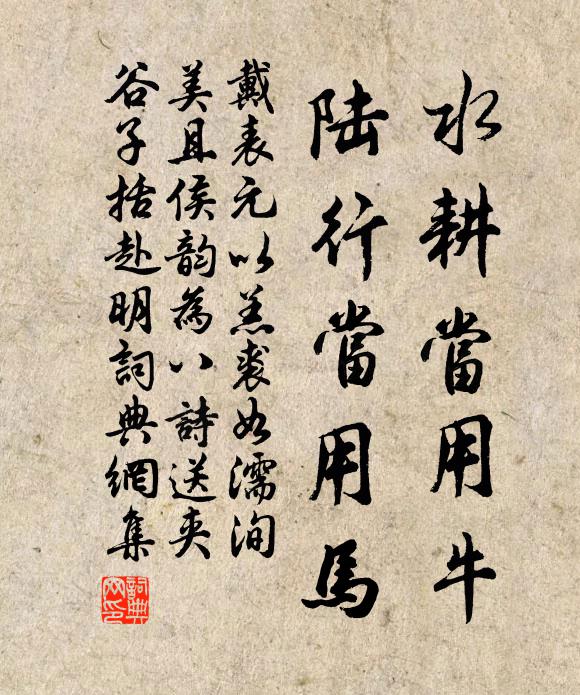 水耕當用牛
陆行當用馬
戴表元以羔裘如濡洵
美且侯韵為八詩送夾
谷子括赴明詞典網集
詞典
网印